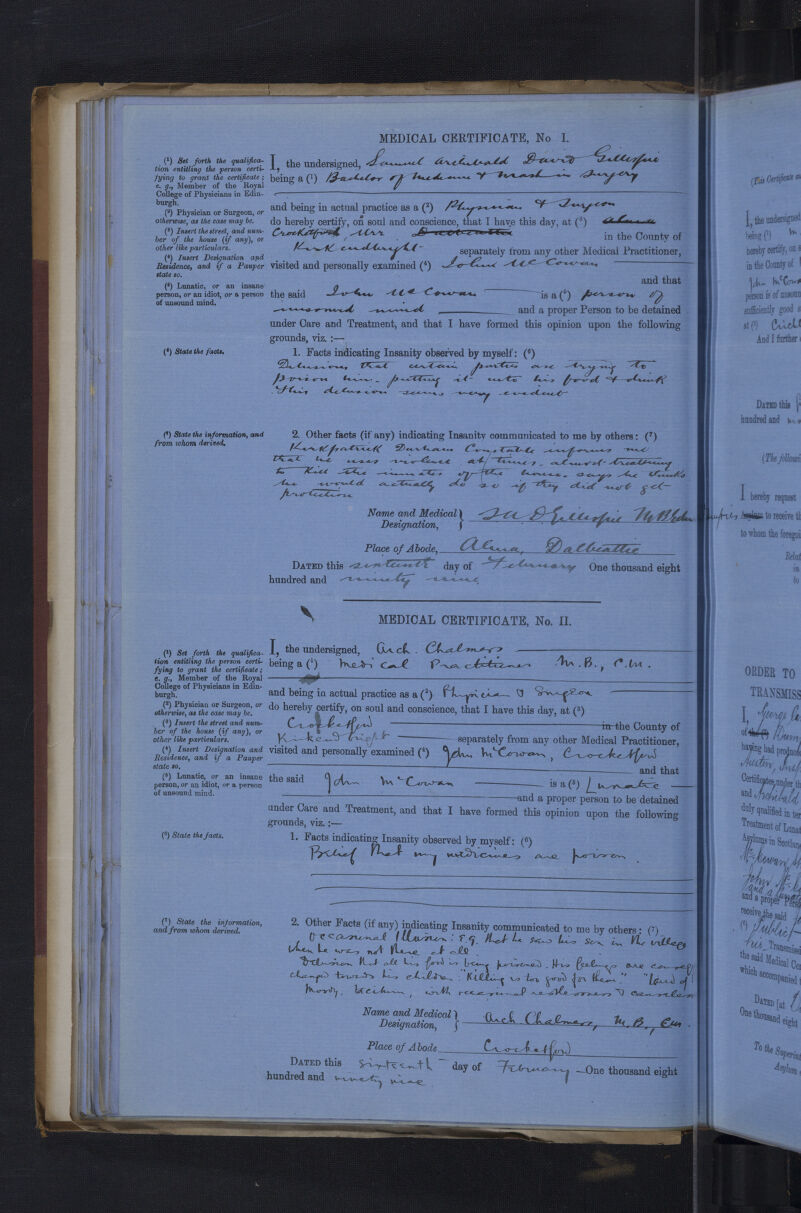 MEDICAL CERTIFICATE, No I.
(¹) Set forth the qualifica-
tion entitling the person certi-
fying to grant the certificate;
e. g., Member of the Royal
College of Physicians in Edin-
burgh.
(²) Physician or Surgeon, or
otherwise, as the case may be.
(³) Insert the street, and num-
ber of the house (if any), or
other like particulars.
(⁴) Insert Designation and
Residence, and if a Pauper
state so.
(⁵) Lunatic, or an insane
person, or an idiot, or a person
of unsound mind.
I, the undersigned, Samuel Archibald David Gillespie
being a (¹) Bachelor of Medicine & Mast in Surgery
and being in actual practice as a (²) Physician & Surgeon
do hereby certify, on soul and conscience, that I have this day, at (³) Alma
Crocketford, Urr Dalbeattie in the County of
Kirkcudbright separately from any other Medical Practitioner,
visited and personally examined (⁴) John McCowan
and that
the said John McCowan is a (⁵) person of
unsound mind and a proper Person to be detained
under Care and Treatment, and that I have formed this opinion upon the following
grounds, viz. :—
(⁶) State the facts.
1. Facts indicating Insanity observed by myself: (⁶)
Delusions that certain parties are trying to
poison him - putting it into his food & drink
This delusion seems very evident
(⁷) State the information, and
from whom derived.
2. Other facts (if any) indicating Insanity communicated to me by others: (⁷)
Kirkpatrick Durham Constable informs me
that he uses violence at times, almost threatening
to kill the inmates of the house. says he thinks
he would actually do so if they did not get
protection
Name and Medical Designation, S A D Gillespie M B
Place of Abode, Alma, Dalbeattie
DATED this sixteenth day of February One thousand eight
hundred and ninety nine
MEDICAL CERTIFICATE, No. II.
(¹) Set forth the qualifica-
tion entitling the person certi-
fying to grant the certificate;
e. g., Member of the Royal
College of Physicians in Edin-
burgh.
(²) Physician or Surgeon, or
otherwise, as the case may be.
(³) Insert the street and num-
ber of the house (if any), or
other like particulars.
(⁴) Insert Designation and
Residence, and if a Pauper
state so.
(⁵) Lunatic, or an insane
person, or an idiot, or a person
of unsound mind.
I, the undersigned, Arch. Chalmers
being a (¹) Medical Practitioner M.B., C.M.
and being in actual practice as a (²) Physician & Surgeon
do hereby certify, on soul and conscience, that I have this day, at (³)
Crocketford in the County of
Kirkcudbright separately from any other Medical Practitioner,
visited and personally examined (⁴) John McCowan, Crocketford
and that
the said John McCowan is a (⁵) Lunatic
and a proper person to be detained
under Care and Treatment, and that I have formed this opinion upon the following
grounds, viz. :—
(⁶) State the facts.
1. Facts indicating Insanity observed by myself: (⁶)
Belief that my medicines are poison.
(⁷) State the information,
and from whom derived.
2. Other Facts (if any) indicating Insanity communicated to me by others: (⁷)
Occasional Illusion: E.g. that he saw his son in the village
when he was not there at all.
Delusion that all his food is being poisoned. His feelings are
changed towards his children. "Killing is too good for them."
Moody, with occasional restlessness &
Name and Medical Designation, Arch Chalmers, M.B., C.M.
Place of Abode Crocketford
DATED this Sixteenth day of February One thousand eight
hundred and ninety nine
I, the undersigned
being (¹)
hereby certify, on
in the County of
person is of unsoun
sufficiently good
at (³)
And I further
DATED this
hundred and
I hereby request
to receive th
to whom the foregoi
ORDER TO
TRANSMISS
I, George
having had produced
and Archibald
duly qualified in ter
Treatment of Luna
Asylums in Scotland
and a proper Perso
receive the said
the said Medical
which accompanied
DATED (at
One thousand eight
To the Superint
Asylum